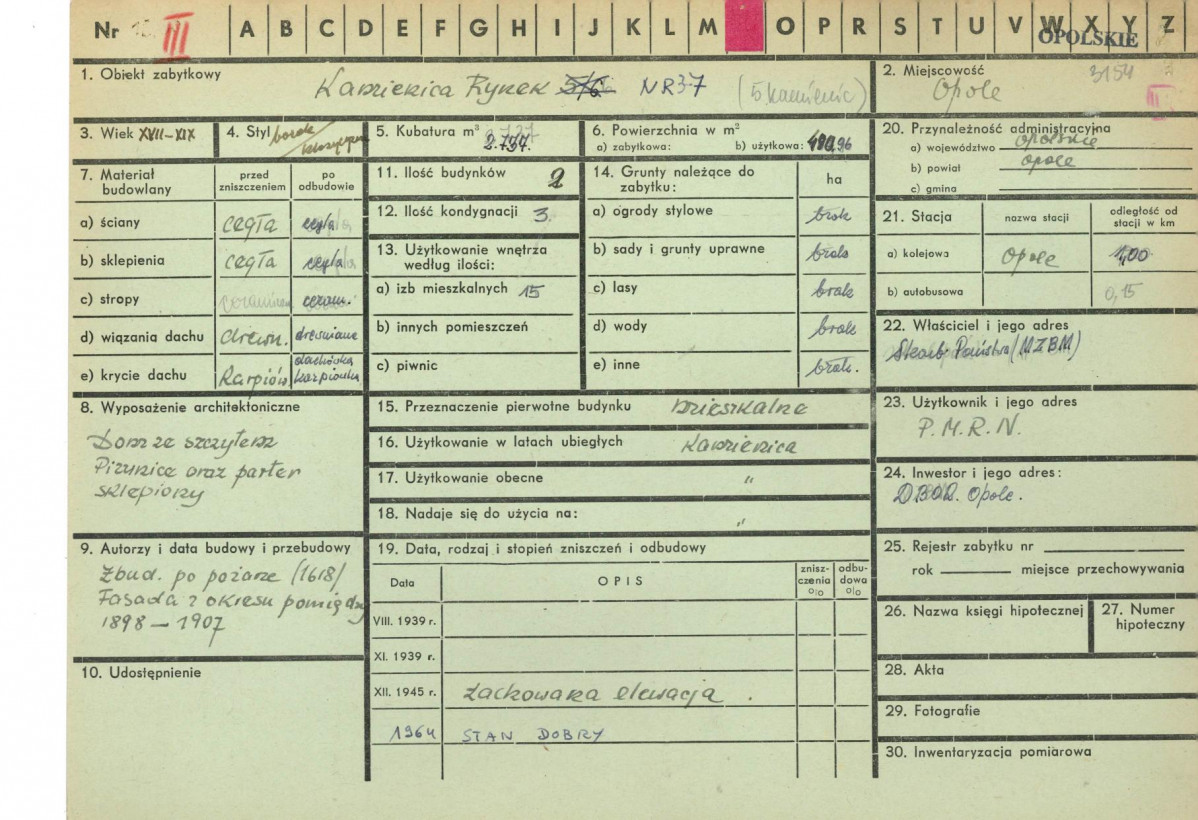 Nr III A B C D E F G H I J K L M O P R S T U V W X Y Z
OPOLSKIE
1. Obiekt zabytkowy
Kamienica Rynek 5/6 NR 37 (5. kamienic)
2. Miejscowość
3154
Opole
3. Wiek XVII-XIX
4. Styl barok /
5. Kubatura m³
2.737.
6. Powierzchnia w m²
a) zabytkowa: b) użytkowa:
7. Materiał budowlany
przed zniszczeniem
po odbudowie
a) ściany cegła cegła
b) sklepienia cegła cegła
c) stropy ceram.
d) wiązania dachu drewn. drewniane
e) krycie dachu Karpiów. dachówka karpiówka
8. Wyposażenie architektoniczne
Dom ze szczytem
Piwnice oraz parter
sklepiony
9. Autorzy i data budowy i przebudowy
Zbud. po pożarze (1618/
Fasada z okresu pomiędzy
1898 – 1907
10. Udostępnienie
11. Ilość budynków 2
12. Ilość kondygnacji 3.
13. Użytkowanie wnętrza
według ilości:
a) izb mieszkalnych 15
b) innych pomieszczeń
c) piwnic
14. Grunty należące do
zabytku:
ha
a) ogrody stylowe brak
b) sady i grunty uprawne brak
c) lasy brak
d) wody brak
e) inne brak.
15. Przeznaczenie pierwotne budynku mieszkalne
16. Użytkowanie w latach ubiegłych kamienica
17. Użytkowanie obecne "
18. Nadaje się do użycia na: "
19. Data, rodzaj i stopień zniszczeń i odbudowy
Data OPIS znisz-
czenia % odbu-
dowa %
VIII. 1939 r.
XI. 1939 r.
XII. 1945 r. Zachowana elewacja.
1964 STAN DOBRY
20. Przynależność administracyjna
a) województwo opolskie
b) powiat opole
c) gmina
21. Stacja nazwa stacji odległość od
stacji w km
a) kolejowa Opole 1,00
b) autobusowa 0,15
22. Właściciel i jego adres
Skarb Państwa (MZBM)
23. Użytkownik i jego adres
P.M.R.N.
24. Inwestor i jego adres:
DBOR. Opole.
25. Rejestr zabytku nr
rok miejsce przechowywania
26. Nazwa księgi hipotecznej
27. Numer
hipoteczny
28. Akta
29. Fotografie
30. Inwentaryzacja pomiarowa